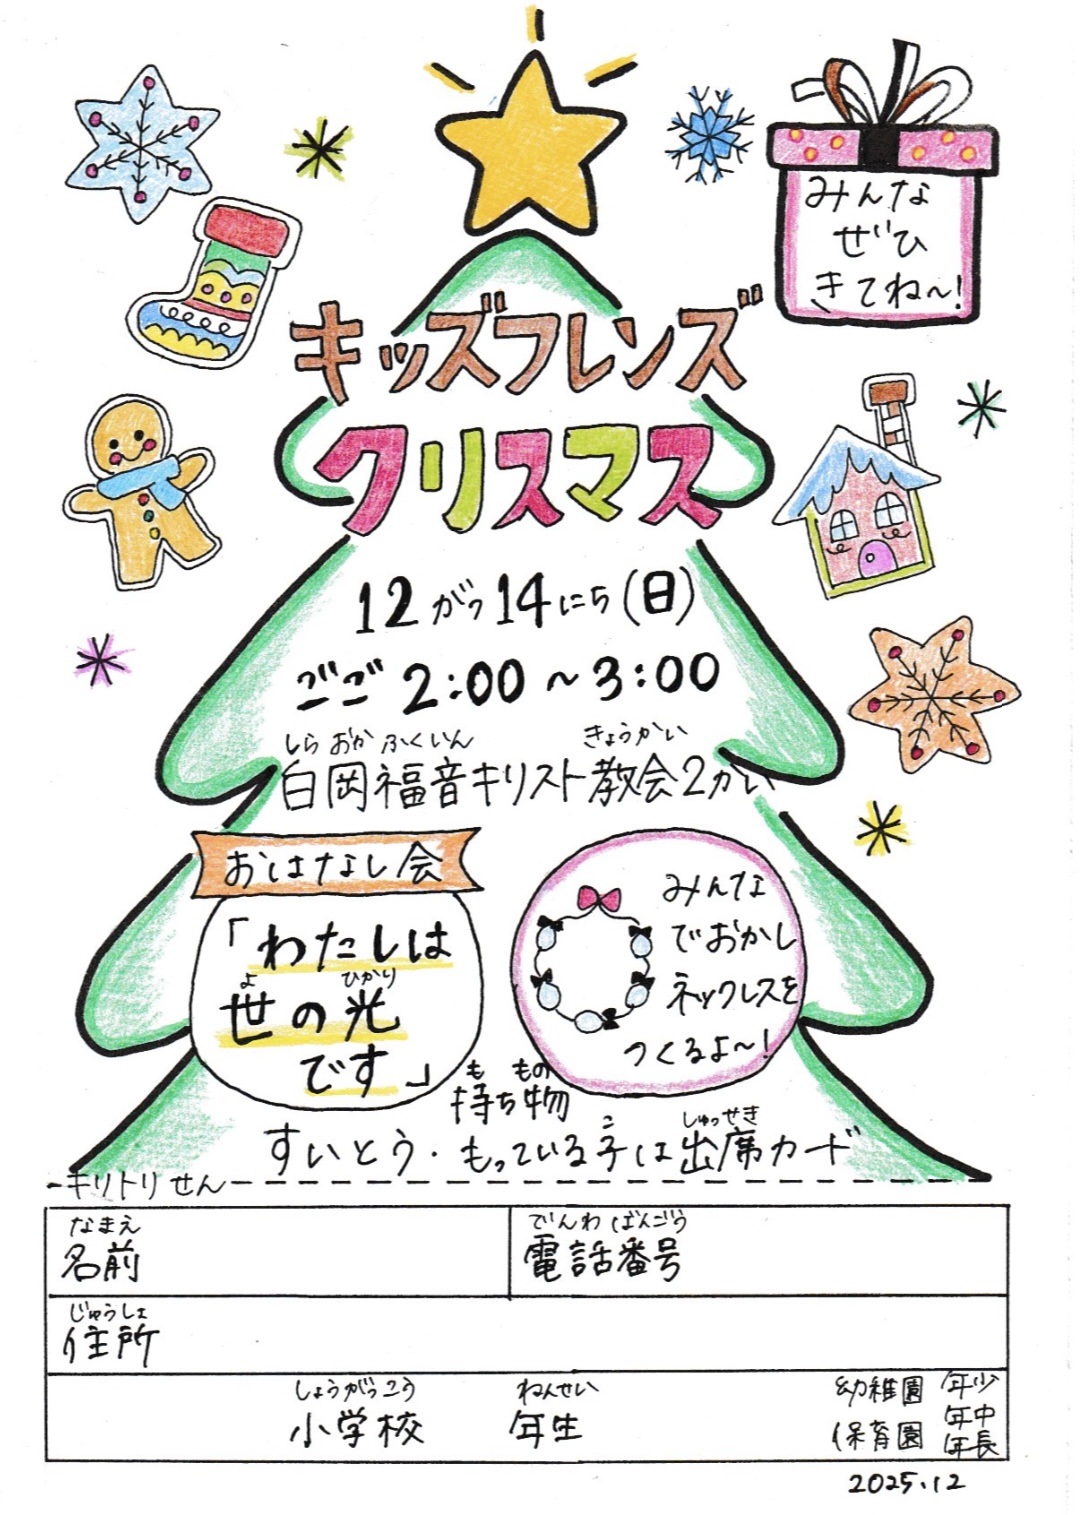 みんな
ぜひ
きてね〜!
キッズフレンズ
クリスマス
12がつ14にち(日)
ごご2:00〜3:00
しらおかふくいん きょうかい
白岡福音キリスト教会2かい
おはなし会
「わたしは
よ ひかり
世の光
です」
みんな
でおかし
ネックレスを
つくるよ〜!
も もの
持ち物
こ しゅっせき
すいとう・もっている子は出席カード
キリトリせん
なまえ
名前
でんわばんごう
電話番号
じゅうしょ
住所
しょうがっこう ねんせい
小学校 年生
幼稚園
保育園
年少
年中
年長
2025.12